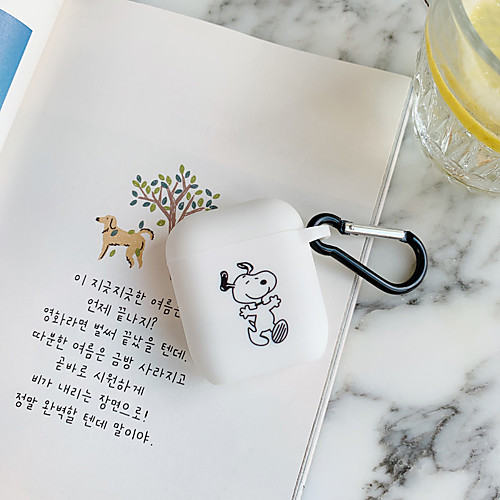 이 지긋지긋한 여름은
언제 끝나지?
영화라면 벌써 끝났을 텐데.
따분한 여름은 금방 사라지고
곧바로 시원하게
비가 내리는 장면으로!
정말 완벽할 텐데 말이야.